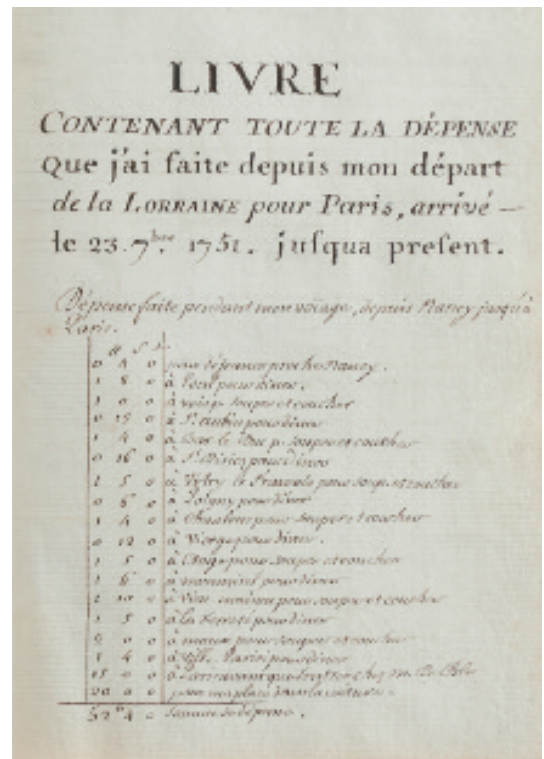 LIVRE
CONTENANT TOUTE LA DÉPENSE
Que j'ai faite depuis mon départ
de la LORRAINE pour Paris, arrivé —
le 23. 7bre. 1751. juſqua preſent.
Dépense faite pendant mon voïage, depuis Nancy jusqu'à
Paris.
0 4 0 pour déjeuner proche Nancy.
1 8 0 à Toul pour diner.
1 0 0 à souper et coucher
0 15 0 à St. Aubin pour diner
1 4 0 à Bar le Duc p. souper et coucher
0 16 0 à St. Dizier pour diner
1 5 0 à Vitry le François pour soup. et coucher
0 6 0 à pour diner
1 4 0 à Chaalons pour souper et coucher
0 12 0 à pour diner.
1 5 0 à pour souper et coucher
1 6 0 à pour diner
1 10 0 à pour souper et coucher
1 5 0 à la Ferté pour diner
2 0 0 à meaux pour souper et coucher
1 4 0 à Ville Parisi pour diner
15 0 0 à avant que chez M.
20 0 0 pour ma place dans la voiture.
52 4 0 Somme de dépense.